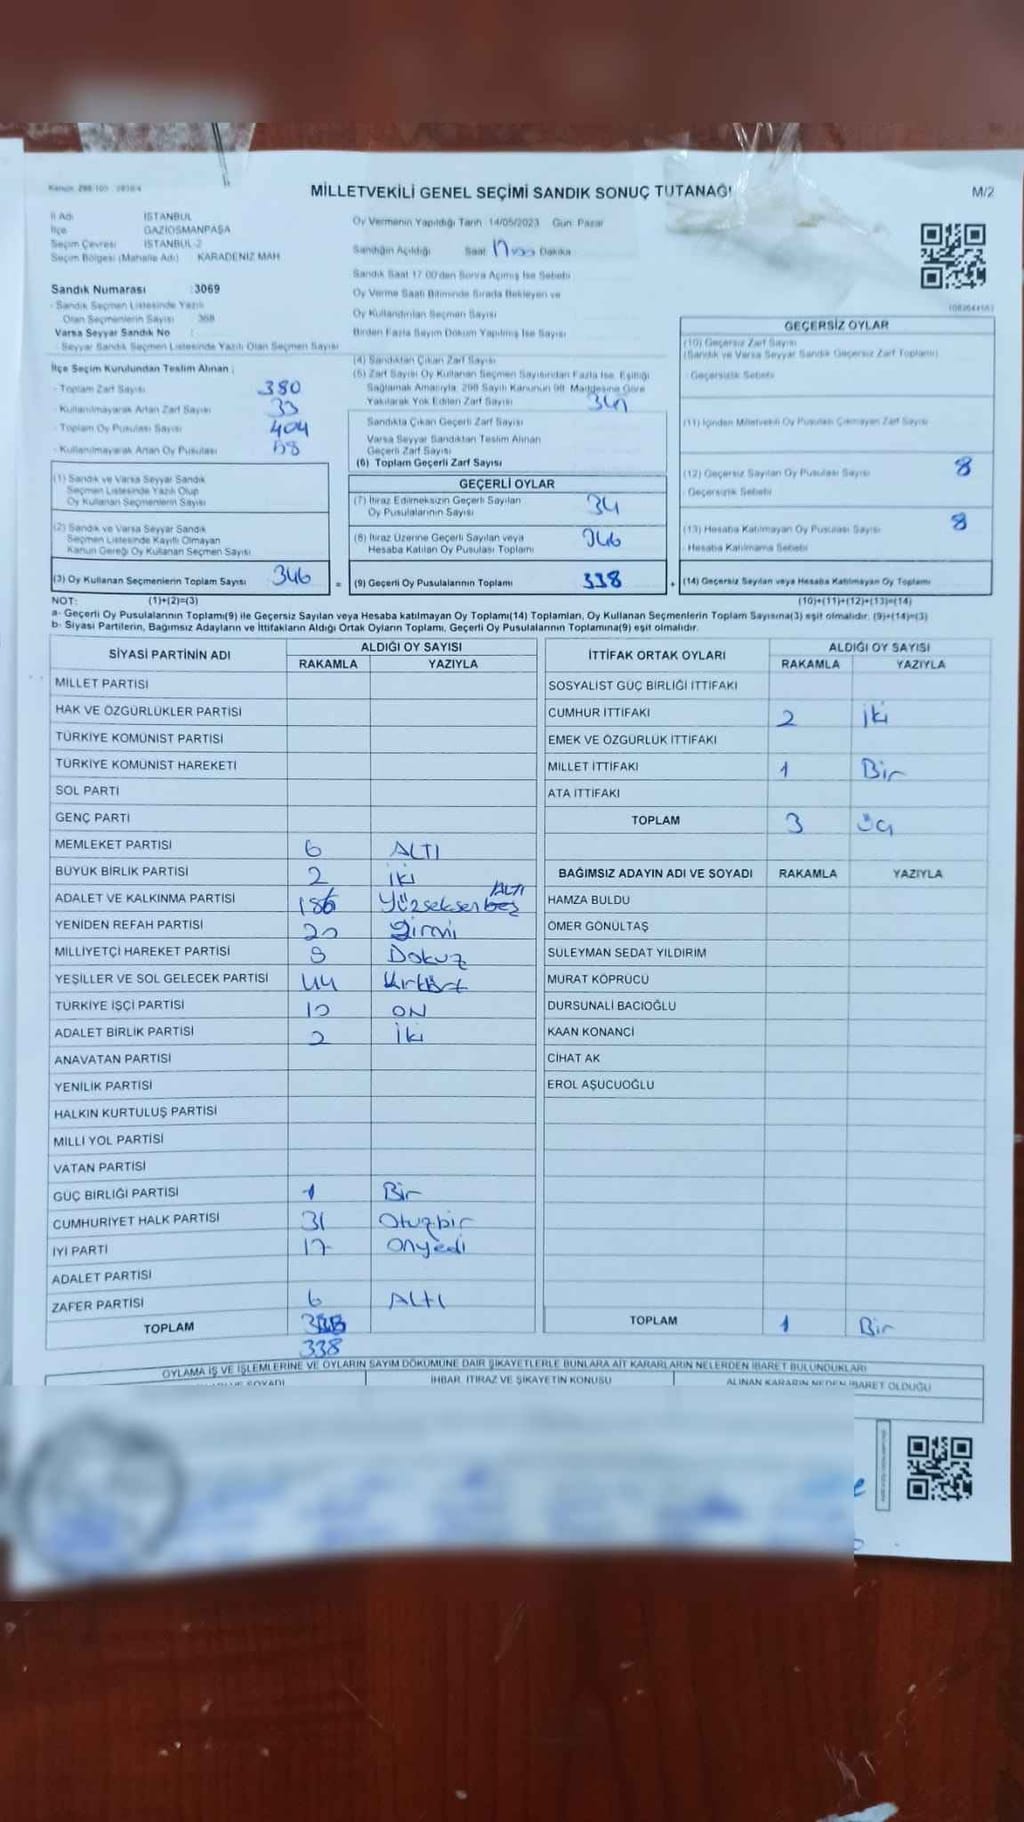 MİLLETVEKİLİ GENEL SEÇİMİ SANDIK SONUÇ TUTANAĞI
M/2
İl Adı İSTANBUL
İlçe GAZİOSMANPAŞA
Seçim Çevresi İSTANBUL-2
Seçim Bölgesi (Mahalle Adı) KARADENİZ MAH
Sandık Numarası : 3069
- Sandık Seçmen Listesinde Yazılı
Olan Seçmenlerin Sayısı 368
Varsa Seyyar Sandık No
- Seyyar Sandık Seçmen Listesinde Yazılı Olan Seçmen Sayısı
İlçe Seçim Kurulundan Teslim Alınan ;
- Toplam Zarf Sayısı 380
- Kullanılmayarak Artan Zarf Sayısı 33
- Toplam Oy Pusulası Sayısı 404
- Kullanılmayarak Artan Oy Pusulası
(1) Sandık ve Varsa Seyyar Sandık
Seçmen Listesinde Yazılı Olup
Oy Kullanan Seçmenlerin Sayısı
(2) Sandık ve Varsa Seyyar Sandık
Seçmen Listesinde Kayıtlı Olmayan
Kanun Gereği Oy Kullanan Seçmen Sayısı
(3) Oy Kullanan Seçmenlerin Toplam Sayısı 346 =
Oy Vermenin Yapıldığı Tarih : 14/05/2023 Gün: Pazar
Sandığın Açıldığı Saat Dakika
Sandık Saat 17.00'den Sonra Açılmış İse Sebebi
Oy Verme Saati Bitiminde Sırada Bekleyen ve
Oy Kullandırılan Seçmen Sayısı
Birden Fazla Sayım Döküm Yapılmış İse Sayısı
(4) Sandıktan Çıkan Zarf Sayısı
(5) Zarf Sayısı Oy Kullanan Seçmen Sayısından Fazla İse, Eşitliği
Sağlamak Amacıyla, 298 Sayılı Kanunun 98. Maddesine Göre
Yakılarak Yok Edilen Zarf Sayısı
Sandıkta Çıkan Geçerli Zarf Sayısı
Varsa Seyyar Sandıktan Teslim Alınan
Geçerli Zarf Sayısı
(6) Toplam Geçerli Zarf Sayısı
GEÇERLİ OYLAR
(7) İtiraz Edilmeksizin Geçerli Sayılan
Oy Pusulalarının Sayısı 34
(8) İtiraz Üzerine Geçerli Sayılan veya
Hesaba Katılan Oy Pusulası Toplamı 346
(9) Geçerli Oy Pusulalarının Toplamı 338 +
GEÇERSİZ OYLAR
(10) Geçersiz Zarf Sayısı
(Sandık ve Varsa Seyyar Sandık Geçersiz Zarf Toplamı)
- Geçersizlik Sebebi
(11) İçinden Milletvekili Oy Pusulası Çıkmayan Zarf Sayısı
(12) Geçersiz Sayılan Oy Pusulası Sayısı 8
- Geçersizlik Sebebi
(13) Hesaba Katılmayan Oy Pusulası Sayısı 8
- Hesaba Katılmama Sebebi
(14) Geçersiz Sayılan veya Hesaba Katılmayan Oy Toplamı
NOT: (1)+(2)=(3) (10)+(11)+(12)+(13)=(14)
a- Geçerli Oy Pusulalarının Toplamı(9) ile Geçersiz Sayılan veya Hesaba katılmayan Oy Toplamı(14) Toplamları, Oy Kullanan Seçmenlerin Toplam Sayısına(3) eşit olmalıdır. (9)+(14)=(3)
b- Siyasi Partilerin, Bağımsız Adayların ve İttifakların Aldığı Ortak Oyların Toplamı, Geçerli Oy Pusulalarının Toplamına(9) eşit olmalıdır.
SİYASİ PARTİNİN ADI ALDIĞI OY SAYISI
RAKAMLA YAZIYLA
MİLLET PARTİSİ
HAK VE ÖZGÜRLÜKLER PARTİSİ
TÜRKİYE KOMÜNİST PARTİSİ
TÜRKİYE KOMÜNİST HAREKETİ
SOL PARTİ
GENÇ PARTİ
MEMLEKET PARTİSİ 6 ALTI
BÜYÜK BİRLİK PARTİSİ 2 İki
ADALET VE KALKINMA PARTİSİ 186 Yüzseksenbeş ALTI
YENİDEN REFAH PARTİSİ 20 Yirmi
MİLLİYETÇİ HAREKET PARTİSİ 9 Dokuz
YEŞİLLER VE SOL GELECEK PARTİSİ 44 Kırkdört
TÜRKİYE İŞÇİ PARTİSİ 10 ON
ADALET BİRLİK PARTİSİ 2 İki
ANAVATAN PARTİSİ
YENİLİK PARTİSİ
HALKIN KURTULUŞ PARTİSİ
MİLLİ YOL PARTİSİ
VATAN PARTİSİ
GÜÇ BİRLİĞİ PARTİSİ 1 Bir
CUMHURİYET HALK PARTİSİ 31 Otuzbir
İYİ PARTİ 17 Onyedi
ADALET PARTİSİ
ZAFER PARTİSİ 6 ALTI
TOPLAM 338
338
İTTİFAK ORTAK OYLARI ALDIĞI OY SAYISI
RAKAMLA YAZIYLA
SOSYALİST GÜÇ BİRLİĞİ İTTİFAKI
CUMHUR İTTİFAKI 2 İki
EMEK VE ÖZGÜRLÜK İTTİFAKI
MİLLET İTTİFAKI 1 Bir
ATA İTTİFAKI
TOPLAM 3 Üç
BAĞIMSIZ ADAYIN ADI VE SOYADI RAKAMLA YAZIYLA
HAMZA BULDU
ÖMER GÖNÜLTAŞ
SÜLEYMAN SEDAT YILDIRIM
MURAT KÖPRÜCÜ
DURSUNALİ BACIOĞLU
KAAN KONANCİ
CİHAT AK
EROL AŞUCUOĞLU
TOPLAM 1 Bir
OYLAMA İŞ VE İŞLEMLERİNE VE OYLARIN SAYIM DÖKÜMÜNE DAİR ŞİKAYETLERLE BUNLARA AİT KARARLARIN NELERDEN İBARET BULUNDUKLARI
İHBAR, İTİRAZ VE ŞİKAYETİN KONUSU
ALINAN KARARIN NEDEN İBARET OLDUĞU